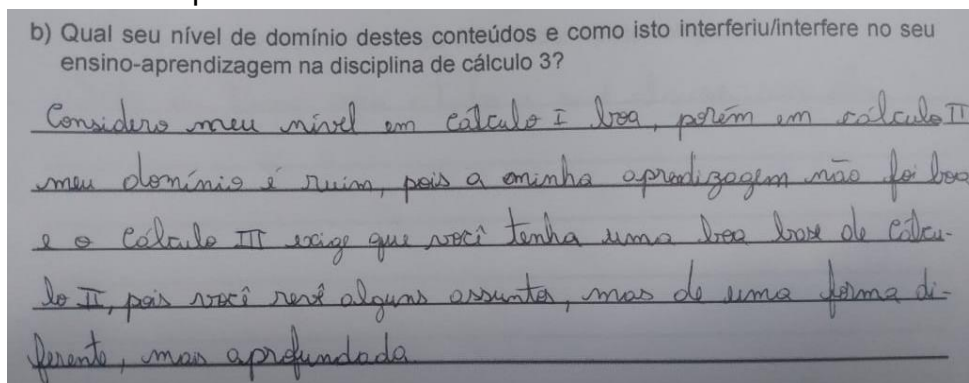 b) Qual seu nível de domínio destes conteúdos e como isto interferiu/interfere no seu
ensino-aprendizagem na disciplina de cálculo 3?
Considero meu nível em cálculo I boa, porém em cálculo II
meu domínio é ruim, pois a minha aprendizagem não foi boa
e o Cálculo III exige que você tenha uma boa base de Cálcu-
lo II, pois você revê alguns assuntos, mas de uma forma di-
ferente, mais aprofundada